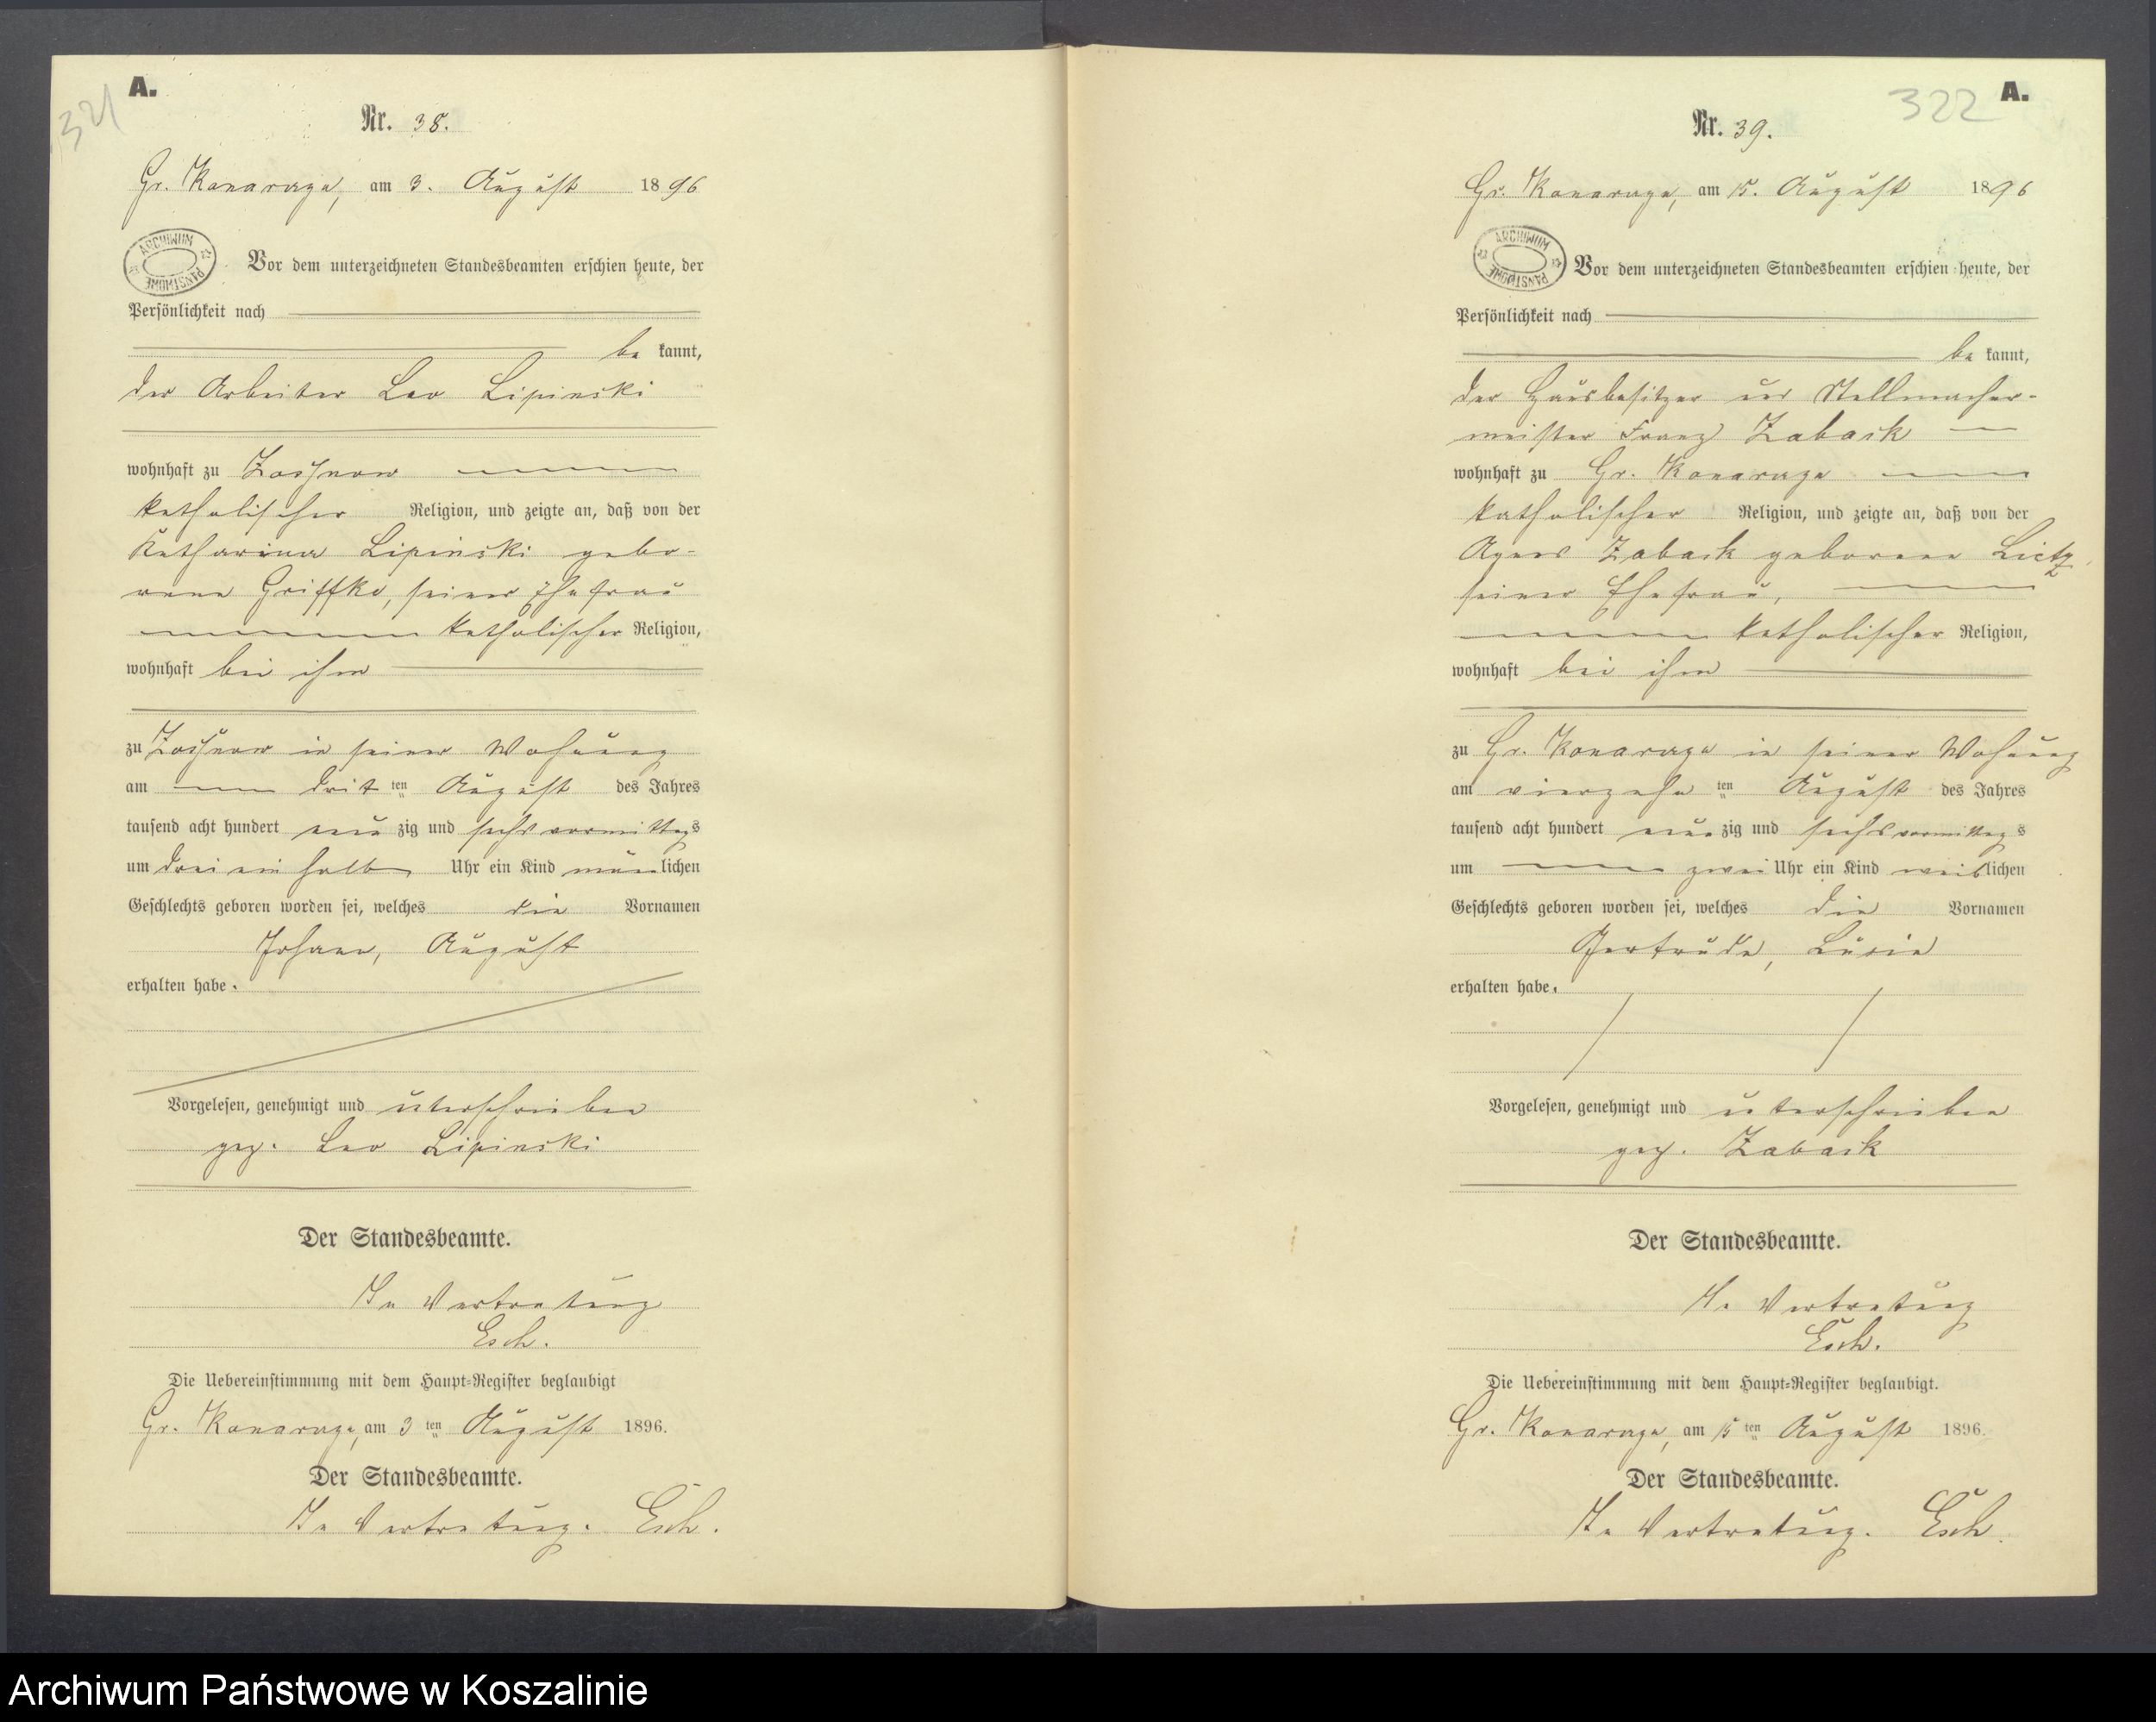 321
A.
Nr. 38.
Gr. Konarczyn, am 3. August 1896
ARCHIWUM PAŃSTWOWE
Vor dem unterzeichneten Standesbeamten erschien heute, der
Persönlichkeit nach
be kannt,
der Arbeiter Leo Lipinski
wohnhaft zu
katholischer Religion, und zeigte an, daß von der
Katharina Lipinski gebo-
rene Griffke, seiner Ehefrau
katholischer Religion,
wohnhaft bei ihm
zu in seiner Wohnung
am drit ten August des Jahres
tausend acht hundert neun zig und sechs vormittags
um drei ein halb Uhr ein Kind männlichen
Geschlechts geboren worden sei, welches die Vornamen
Johann, August
erhalten habe.
Vorgelesen, genehmigt und unterschrieben
gez. Leo Lipinski
Der Standesbeamte.
In Vertretung
Esch.
Die Uebereinstimmung mit dem Haupt-Register beglaubigt
Gr. Konarczyn, am 3 ten August 1896.
Der Standesbeamte.
In Vertretung. Esch.
322
A.
Nr. 39.
Gr. Konarczyn, am 15. August 1896
ARCHIWUM PAŃSTWOWE
Vor dem unterzeichneten Standesbeamten erschien heute, der
Persönlichkeit nach
be kannt,
der Hausbesitzer und Stellmacher-
meister Franz Zabask
wohnhaft zu Gr. Konarczyn
katholischer Religion, und zeigte an, daß von der
Agnes Zabask geborene Lietz,
seiner Ehefrau,
katholischer Religion,
wohnhaft bei ihm
zu Gr. Konarczyn in seiner Wohnung
am vierzehn ten August des Jahres
tausend acht hundert neun zig und sechs vormittags
um zwei Uhr ein Kind weiblichen
Geschlechts geboren worden sei, welches die Vornamen
Gertrude, Lusia
erhalten habe.
Vorgelesen, genehmigt und unterschrieben
gez. Zabask
Der Standesbeamte.
In Vertretung
Esch.
Die Uebereinstimmung mit dem Haupt-Register beglaubigt.
Gr. Konarczyn, am 15 ten August 1896.
Der Standesbeamte.
In Vertretung. Esch.
Archiwum Państwowe w Koszalinie